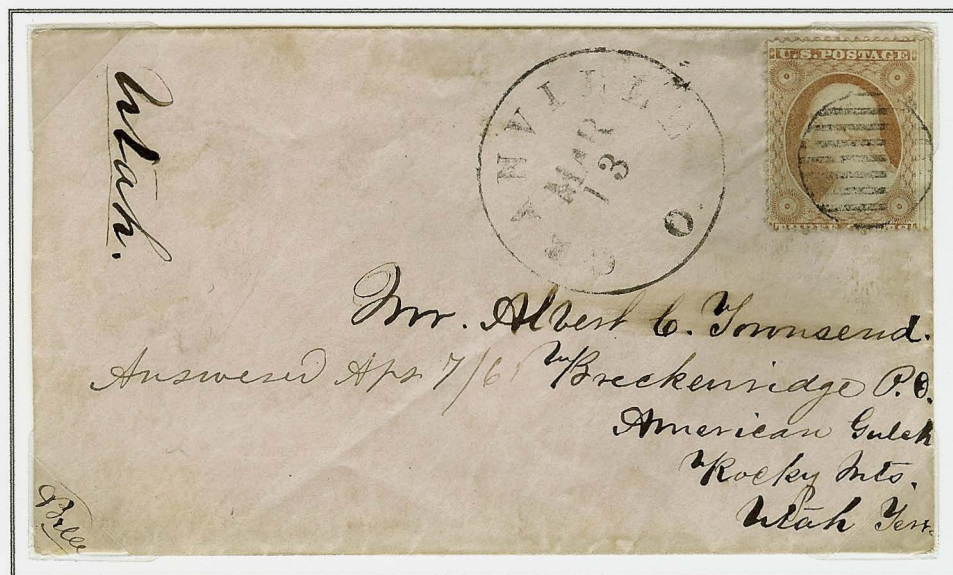 Utah.
GRANVILLE
MAR
13
O.
U.S. POSTAGE
Mr. Albert C. Townsend.
Answered Apr 7/61 Breckenridge P.O.
American Gulch
Rocky Mts.
Utah Terr.